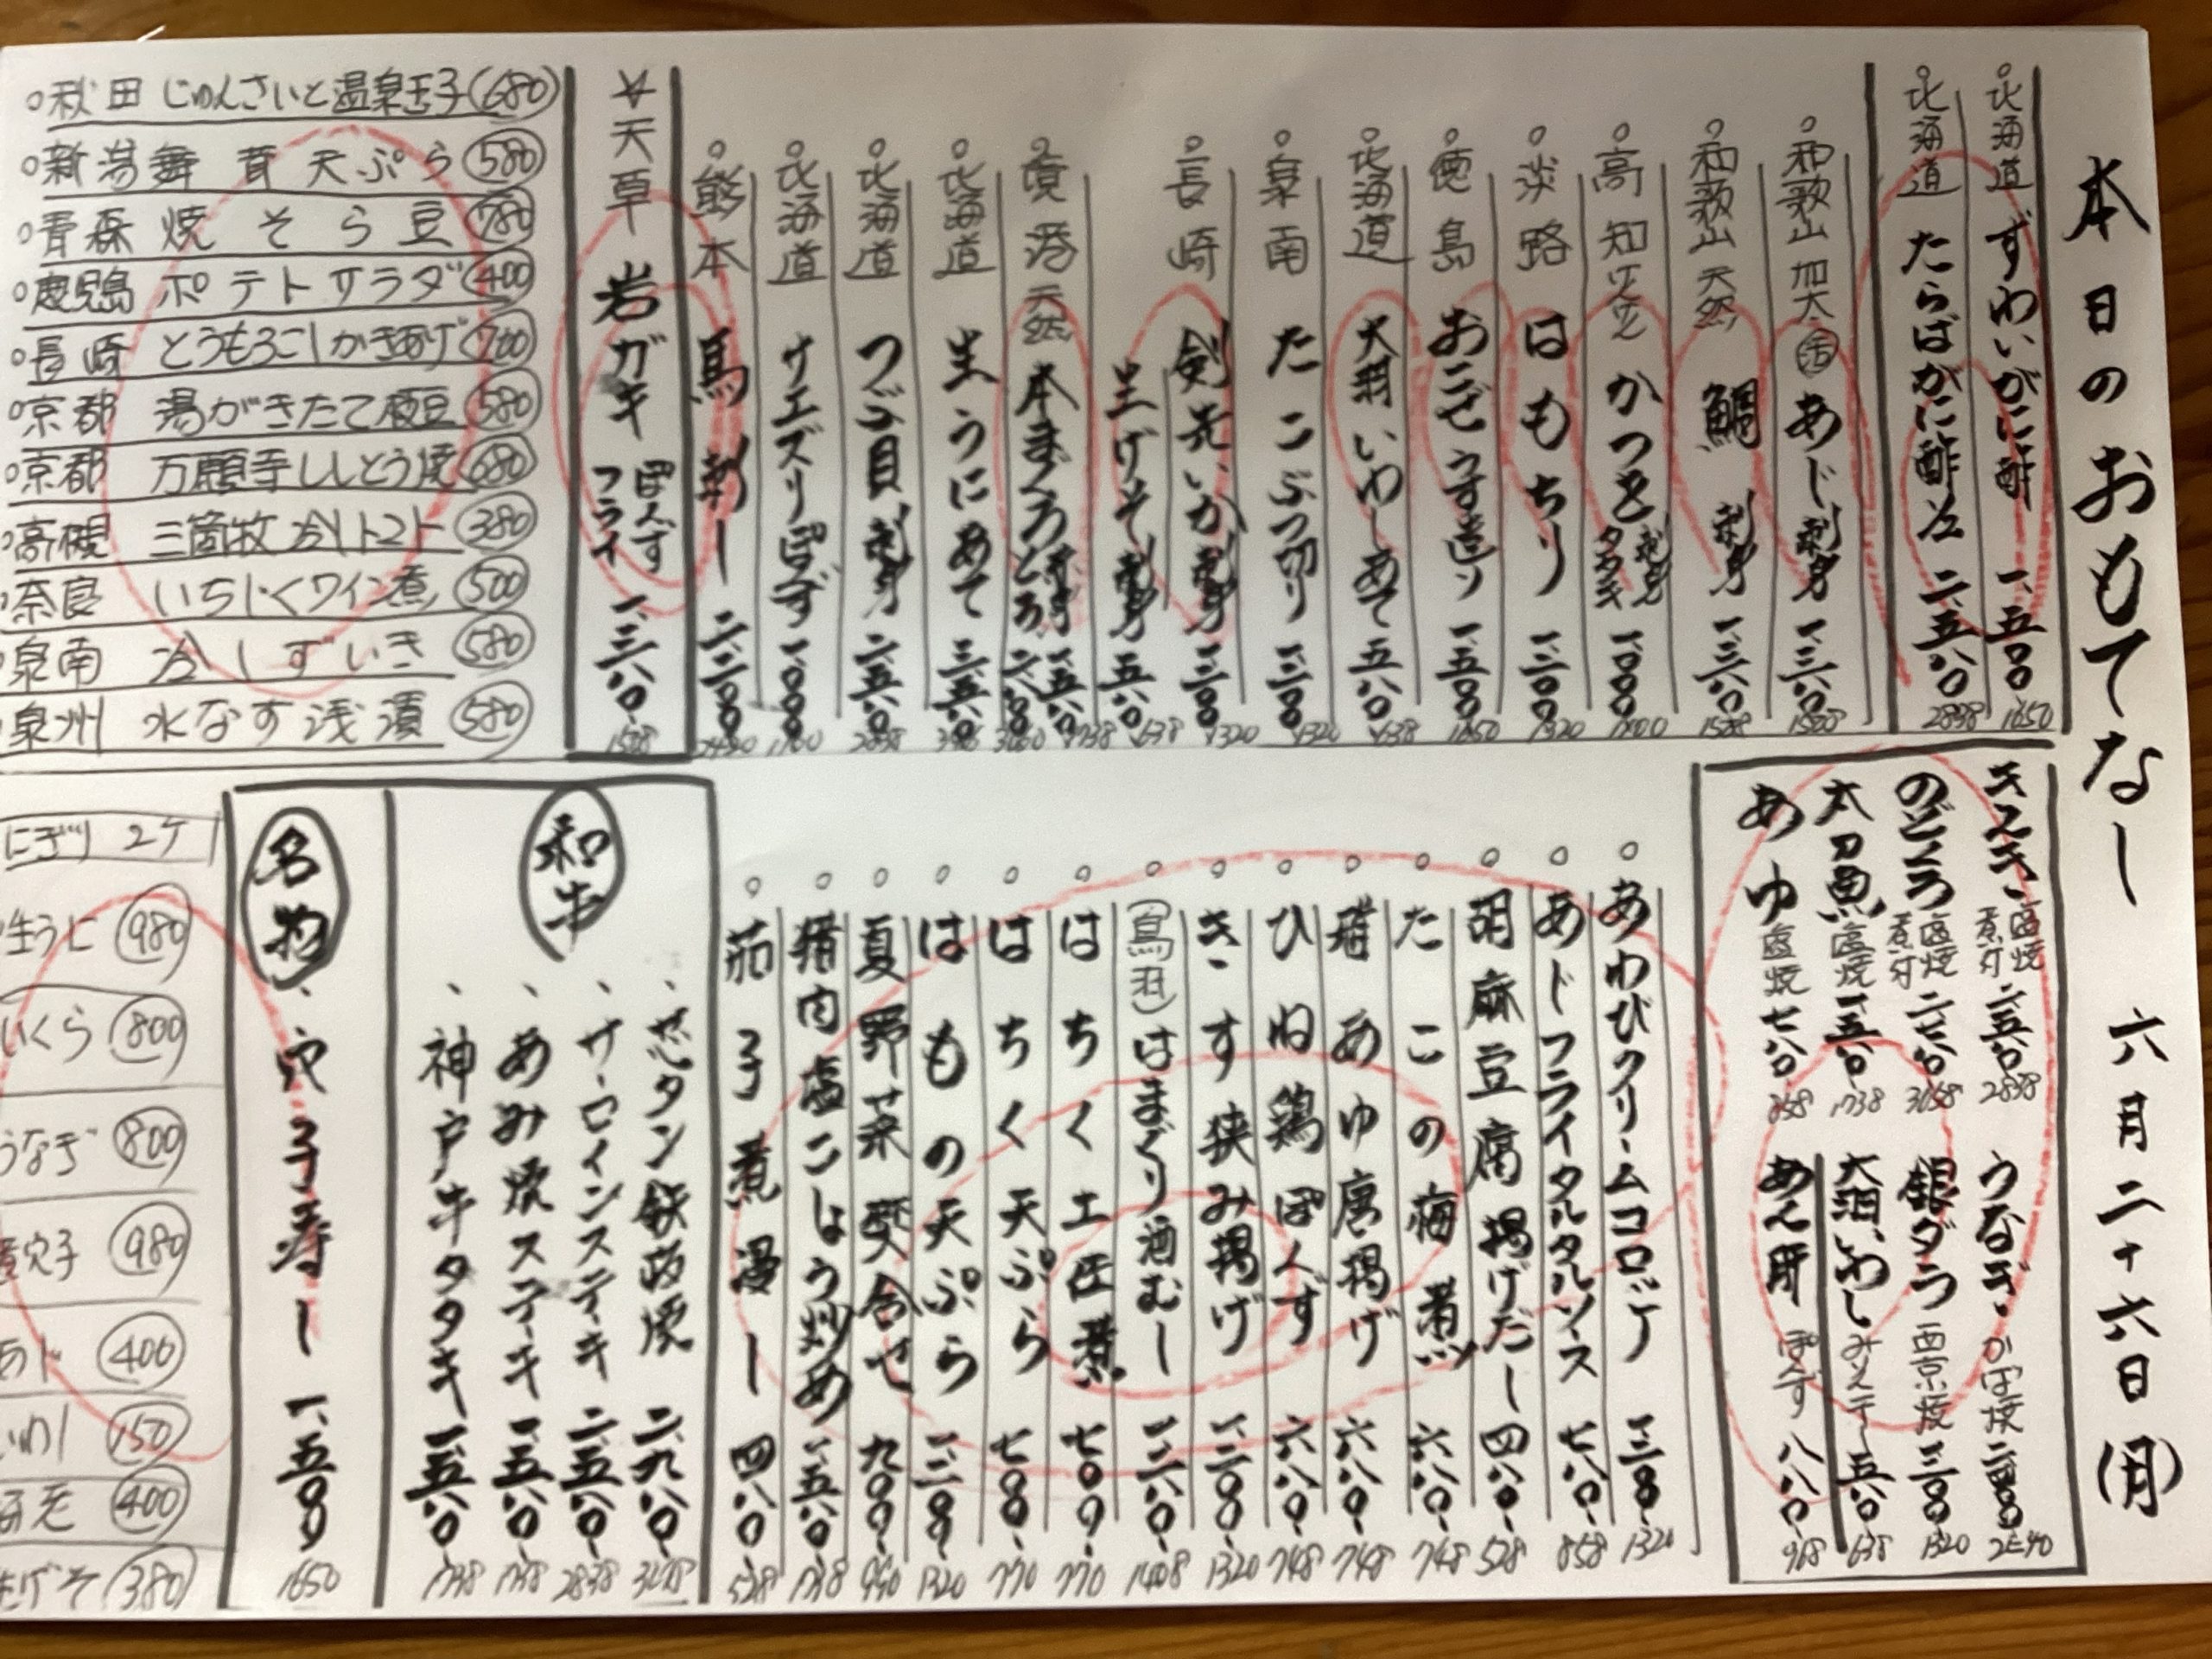 本日のおもてなし 六月二十六日(月)
北海道 ずわいがに酢 一、五〇〇 1650
北海道 たらばがに酢 二、五八〇 2838
和歌山 加太 活 あじ 刺身 一、三八〇
和歌山 天然 鯛 刺身 一、三八〇
高知 かつを 刺身 タタキ 一、〇〇〇 1100
淡路 はも ちり 一、二〇〇 1320
徳島 おこぜ うす造り 一、五〇〇 1650
北海道 大羽いわし あて 五八〇 638
泉南 たこぶつ切り 一、二〇〇 1320
長崎 剣先いか 刺身 一、二〇〇 1320
生げそ 刺身 五八〇 638
境港 天然 本まぐろ 赤身 一、五八〇 1738
とろ 二、八〇〇 3080
北海道 生うにあて 三、五八〇
北海道 つぶ貝 刺身 二、五八〇 2838
北海道 サエズリ ぽんず 一、〇〇〇 1100
熊本 馬刺し 二、二〇〇 2420
天草 岩ガキ ぽんず フライ 一、三八〇
秋田 じゅんさいと温泉玉子 680
新潟 舞茸天ぷら 580
青森 焼そら豆 780
鹿児島 ポテトサラダ 400
長崎 とうもろこしかきあげ 700
京都 湯がきたて枝豆 580
京都 万願寺ししとう焼 680
高槻 三箇牧 冷しトマト 380
奈良 いちじくワイン煮 500
泉南 冷しずいき 580
泉州 水なす浅漬 580
きんき 塩焼 煮付 二、五八〇 2838
のどぐろ 塩焼 煮付 二、七八〇 3058
太刀魚 塩焼 一、五八〇 1738
あゆ 塩焼 七八〇 858
うなぎ かば焼 二、四〇〇 2640
銀ダラ 西京焼 一、二〇〇 1320
大羽いわし 五八〇 638
あん肝 ぽんず 八八〇 968
あわびクリームコロッケ 一、二〇〇 1320
あじフライタルタルソース 七八〇 858
胡麻豆腐揚げだし 四八〇 528
たこの梅煮 六八〇 748
稚あゆ唐揚げ 六八〇 748
ひね鶏ぽんず 六八〇 748
きす挟み揚げ 一、二〇〇 1320
はまぐり酒むし 一、二八〇 1408
はちく土佐煮 七〇〇 770
はちく天ぷら 七〇〇 770
はもの天ぷら 一、二〇〇 1320
夏野菜焚合せ 九〇〇 990
猪肉塩こしょう炒め 一、五八〇 1738
茄子煮浸し 四八〇 528
和牛
芯タン鉄板焼 二、九八〇 3278
サーロインステーキ 二、五八〇 2838
あみ焼ステーキ 一、五八〇 1738
神戸牛タタキ 一、五八〇 1738
名物
穴子寿し 一、五〇〇 1650
にぎり 2ケ
生うに 980
いくら 800
うなぎ 800
煮穴子 980
あじ 400
いわし 150
剣先 400
生げそ 380